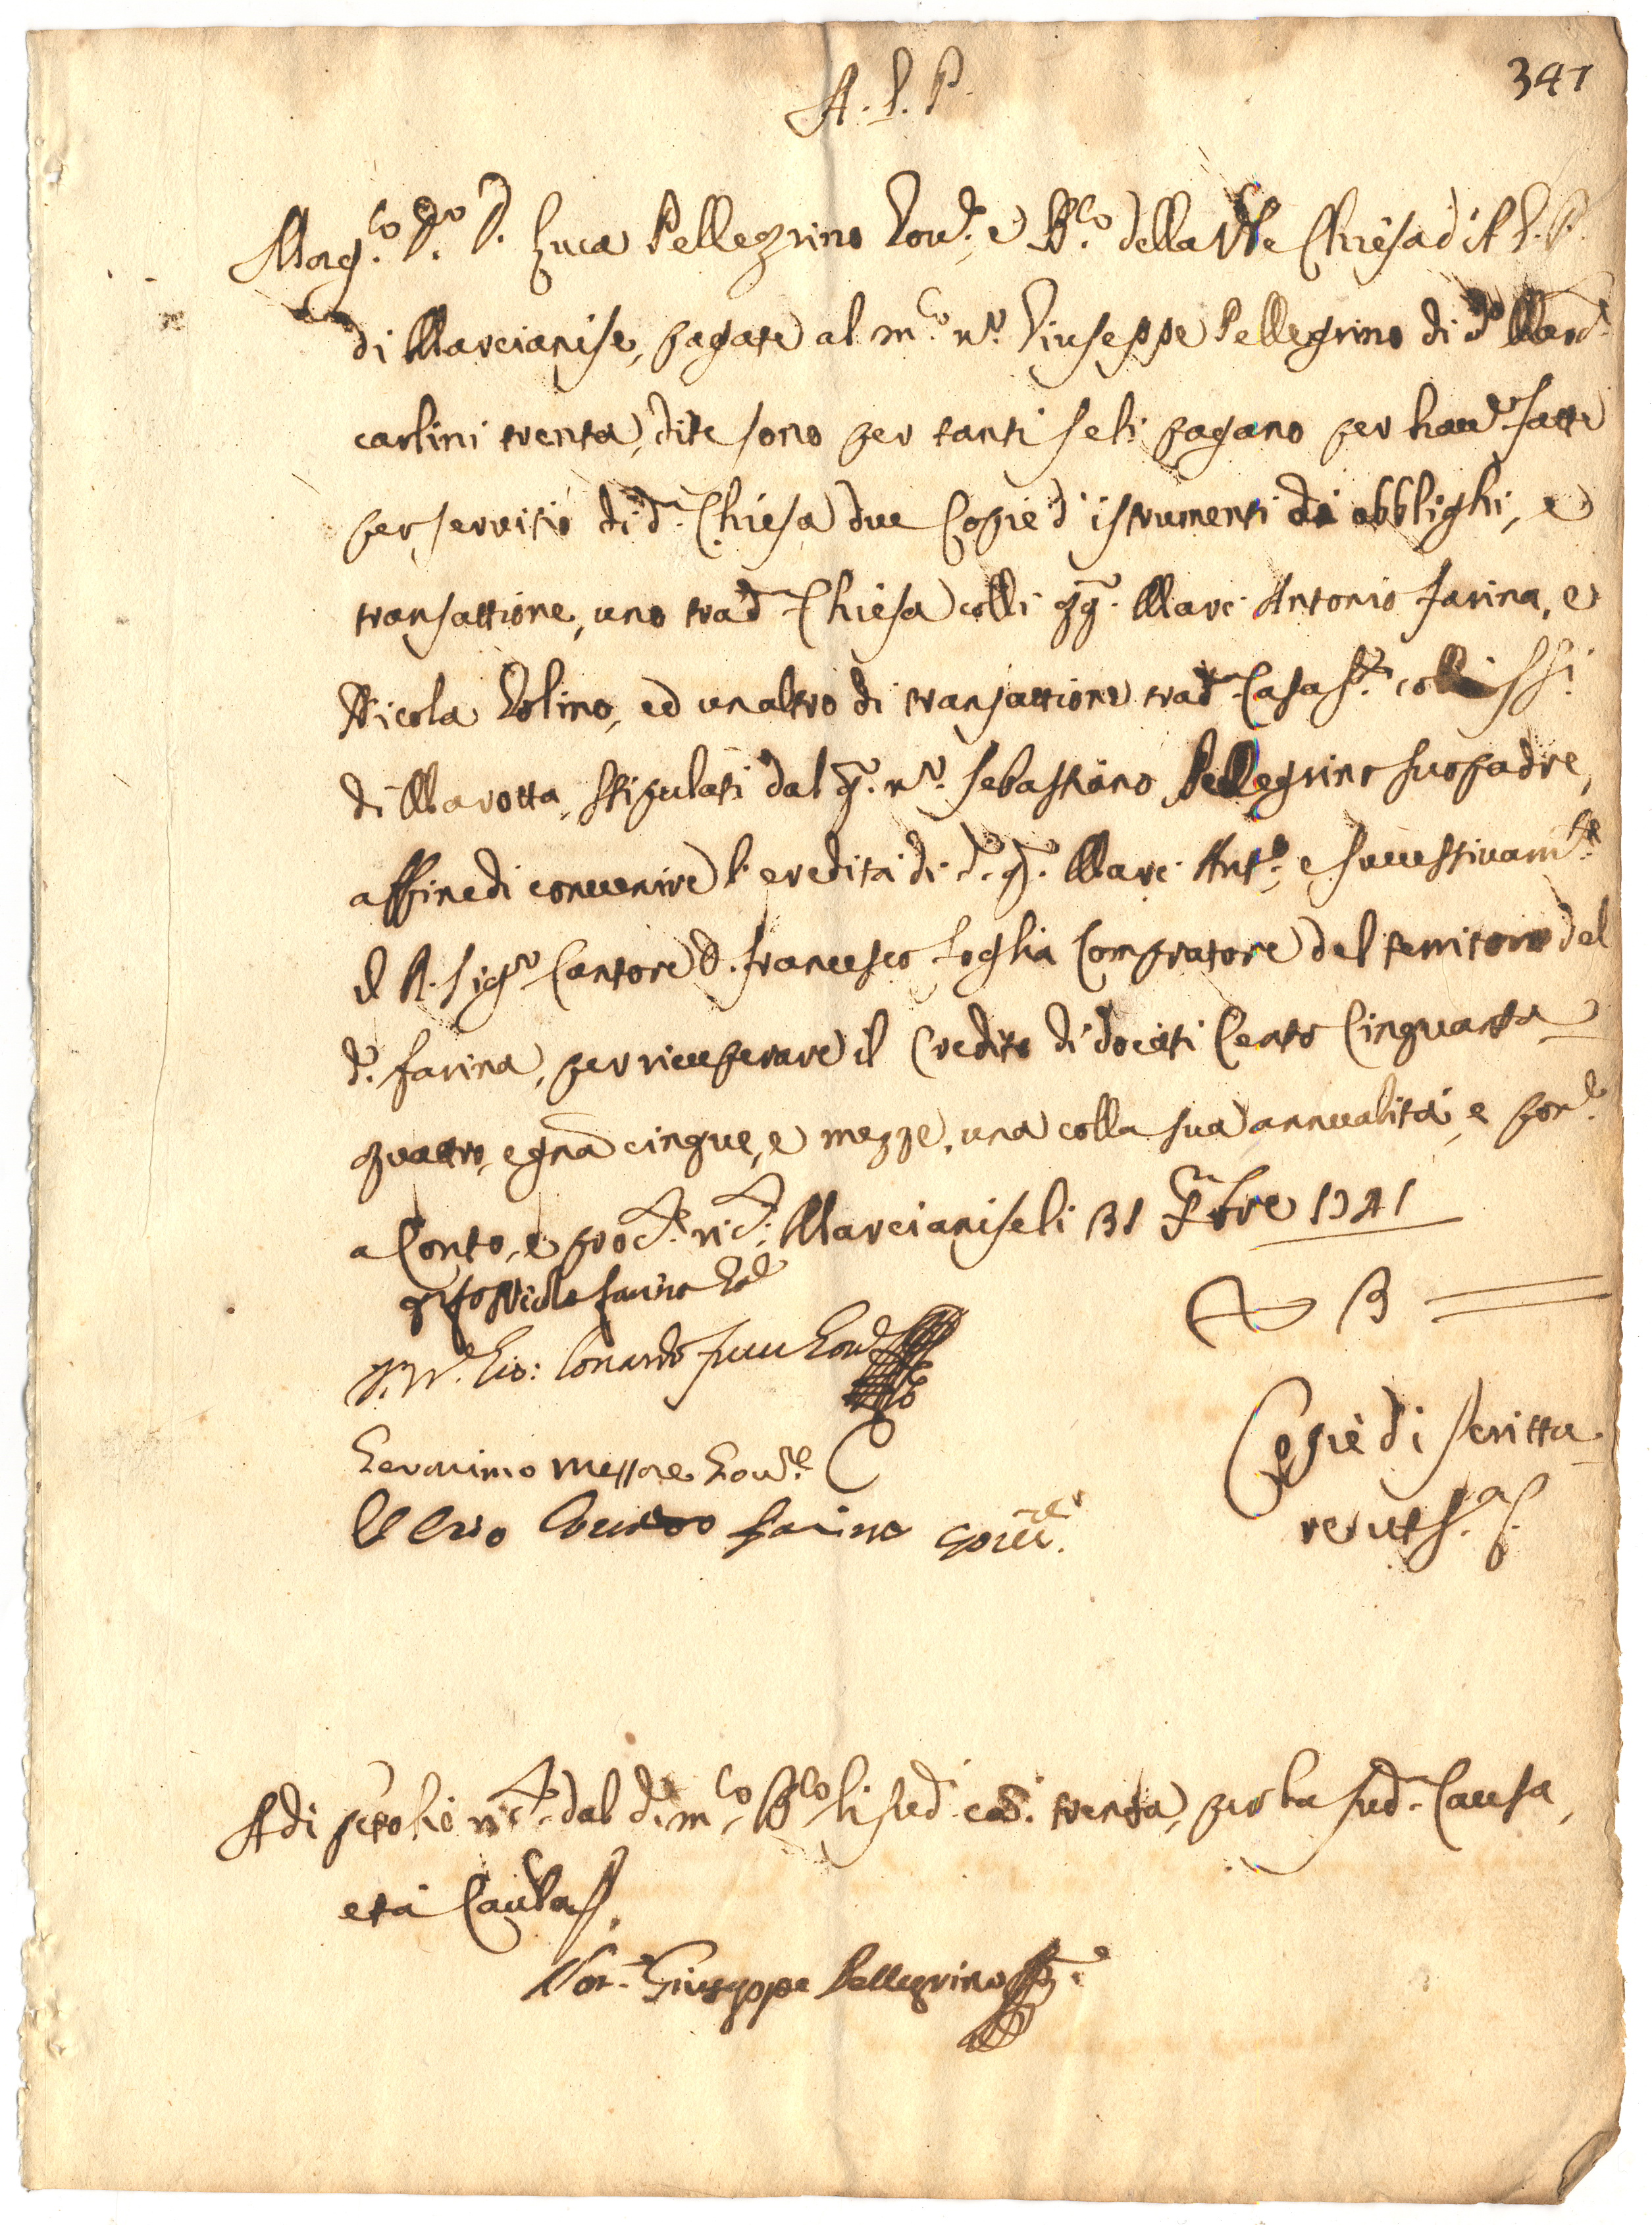 A. G. P.
347
Mag.co D.r D. Luca Pellegrino Gov.re e B.co della V.le Chiesa di A. G. P.
di Marcianise, pagate al m.co n.r Giuseppe Pellegrino di d.o Marc.e
carlini trenta, dite sono per tanti seli pagano per haver fatte
per servitio di d.a Chiesa due Copie d'istrumenti di obblighi, e
transattione, uno tra d.a Chiesa colli qq. Marc'Antonio Farina, e
Nicola Golino, ed un altro di transattione tra d.a Casa S.ta colli SS.i
di Marotta, stipulati dal q. n.r Sebastiano Pellegrino suo padre,
affine di convenire l'eredità di d.o q. Marc'Ant.o, e successivam.te
il R. Sig.r Cantore D. Francesco Foglia Compratore del territorio del
d.o Farina, per ricuperare il Credito di docati Cento Cinquanta
quattro, e grana cinque, e mezze, una colla sua annualità, e
a Conto, e Marcianise li 31 Xbre 1741
Nicola Farina Gov.e
Gio: Gov.e
Geronimo Messore Gov.re
Farina Gov.re
D 3 =
Copie di scritta
re ut s.a
A di p.o ric.to dal d.o m.co B.co li sud.i car.i trenta, per la sud.a Causa,
et a Cautela
Not.r Giuseppe Pellegrino